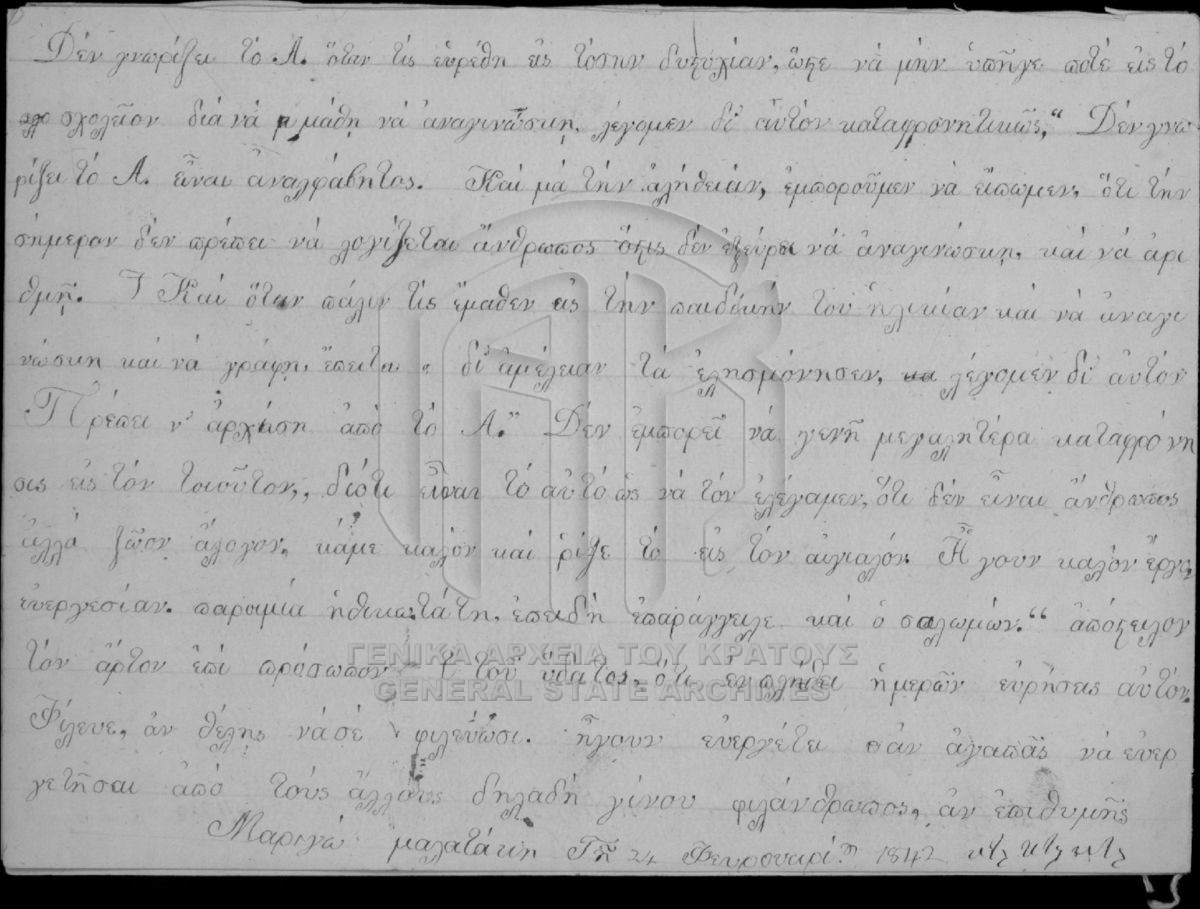 Δέν γνωρίζει τό Α. ὅταν τίς εὑρέθη εἰς τόσην δυςυχίαν, ὥςε νά μήν ὑπῆγε ποτέ εἰς τό
σχολεῖον διά νά μάθη νά ἀναγινώσκη, λέγομεν δι' αὐτόν καταφρονητικῶς,“ Δέν γνω
ρίζει τό Α. εἶναι ἀναλφάβητος. Καί μά τήν ἀλήθειάν, ἐμποροῦμεν νά εἴπωμεν, ὅτι τήν
σήμερον δέν πρέπει νά λογίζεται ἄνθρωπος ὅςις δέν ἐξεύρει νά ἀναγινώσκη, καί νά ἀρι
θμῇ. Καί ὅταν πάλιν τίς ἔμαθεν εἰς τήν παιδικήν του ἡλικίαν καί νά ἀναγι
νώσκη καί νά γράφη, ἔπειτα δι' ἀμέλειαν τά ἐλησμόνησεν, λέγομεν δι' αὐτόν
Πρέπει ν' ἀρχίση ἀπό τό Α.“ Δέν ἐμπορεῖ νά γενῇ μεγαλητέρα καταφρόνη
σις εἰς τόν τοιοῦτον, διότι εἶναι τό αὐτό ὡς νά τόν ἐλέγαμεν, ὅτι δέν εἶναι ἄνθρωπος
ἀλλά ζῶον ἄλογον, κάμε καλόν καί ῥίξε τό εἰς τόν αἰγιαλόν. Ἤγουν καλόν ἔργον,
εὐεργεσίαν. παροιμία ἠθικωτάτη, ἐπειδή ἐπαράγγειλε καί ὁ σολωμών.“ ἀπόςειλον
τόν ἄρτον ἐπί πρόσωπον τοῦ ὕδατος, ὅτι ἐν πλήθει ἡμερῶν εὑρήσεις αὐτόν.
Φίλευε, ἀν θέλης νά σέ φιλεύωσι. ἤγουν εὐεργέτει σάν ἀγαπᾶς νά εὐερ
γετῆσαι ἀπό τούς ἄλλους δηλαδή γίνου φιλάνθρωπος, ἀν ἐπιθυμῆς
Μαριγώ μαλατάκη Τῇ 24 Φευρουαρί. 1842 κτλ κτλ κτλ
ΓΕΝΙΚΑ ΑΡΧΕΙΑ ΤΟΥ ΚΡΑΤΟΥΣ
GENERAL STATE ARCHIVES